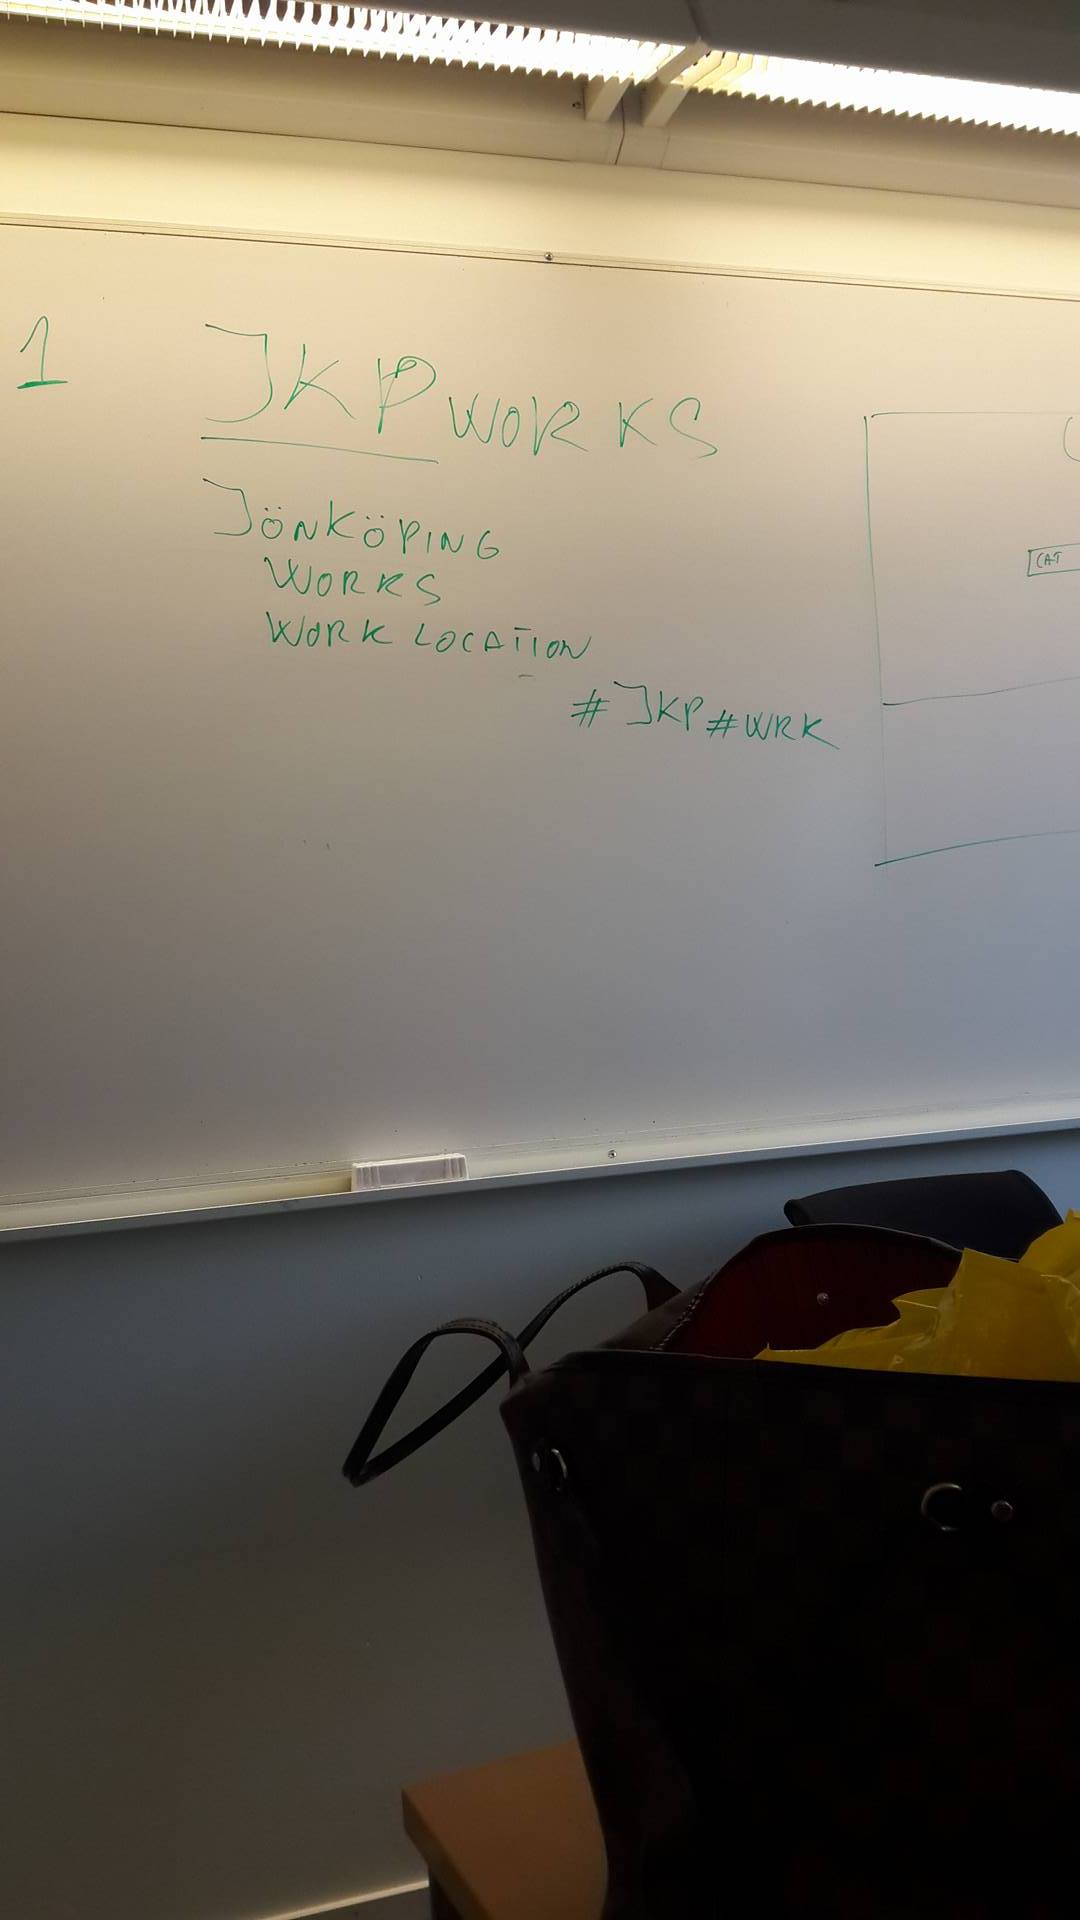 1
JKP WORKS
JÖNKÖPING
WORKS
WORK LOCATION
#JKP #WRK
CAT